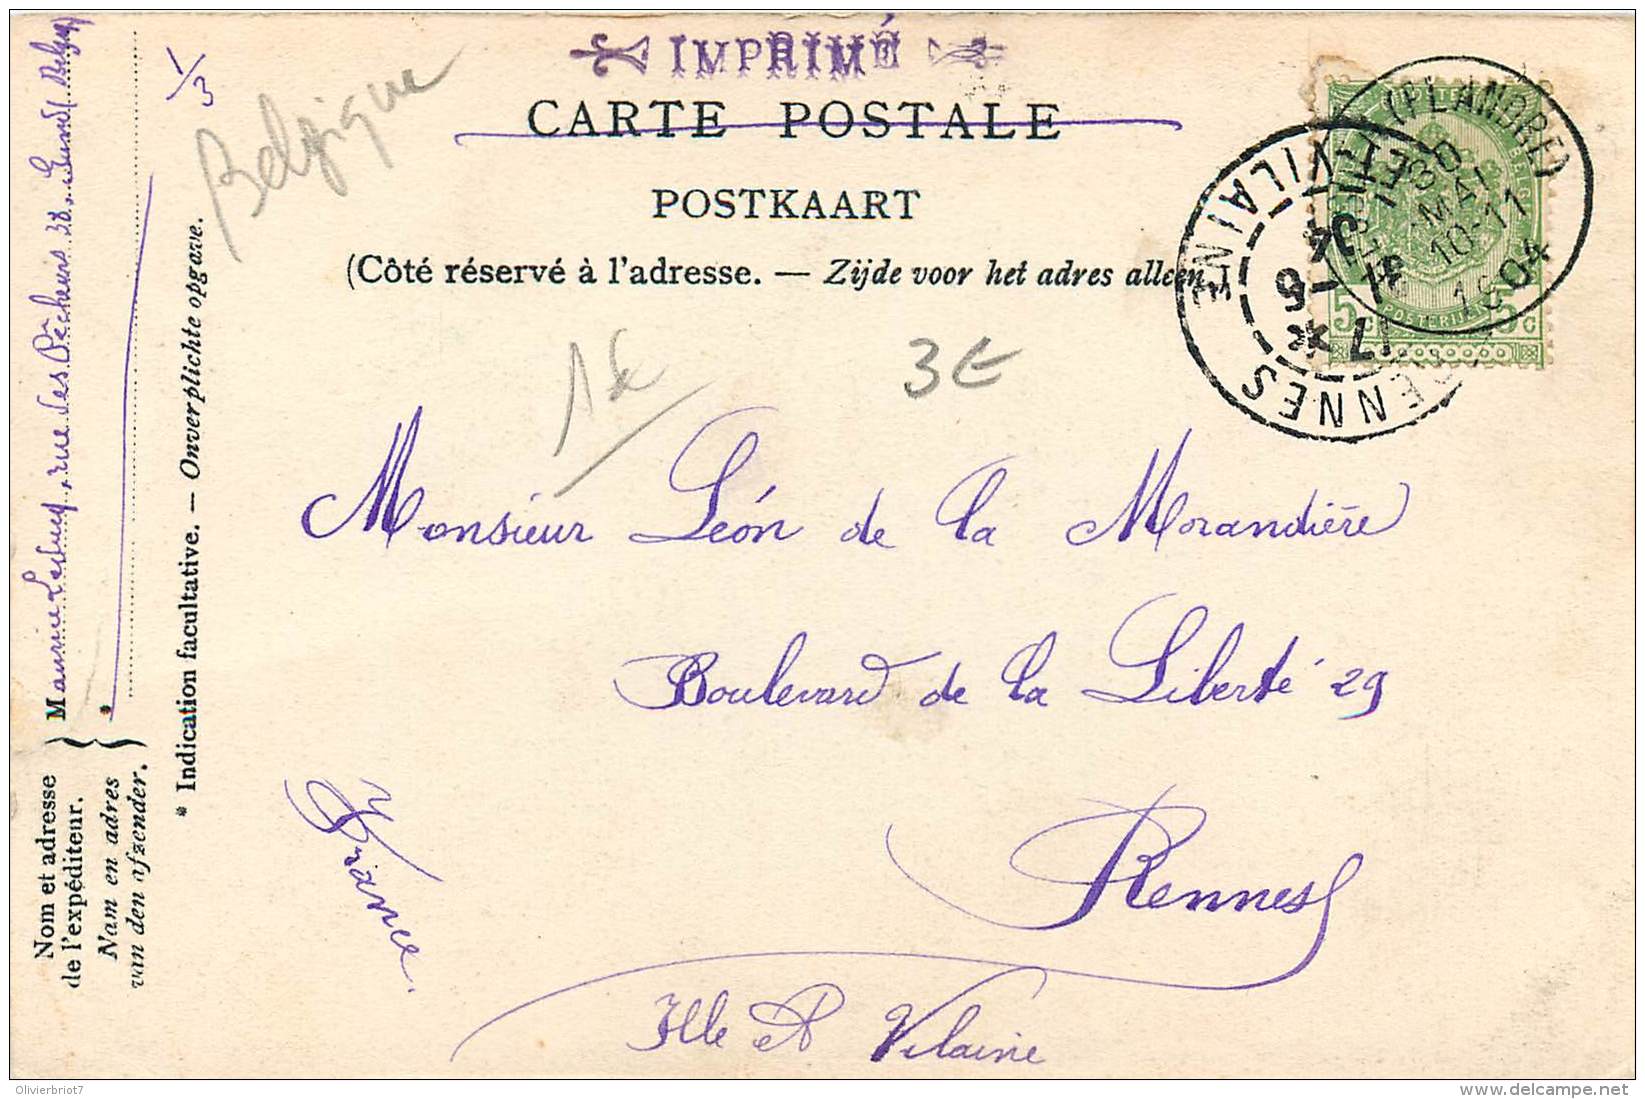 IMPRIMÉ
CARTE POSTALE
POSTKAART
(Côté réservé à l'adresse. — Zijde voor het adres alleen.)
Belgique
1/3
3 €
(FLANDRE)
30
MAI
10-11
1904
ET-VILAINE
RENNES
POSTERIJEN
5c 5c
Monsieur Léon de la Morandière
Boulevard de la Liberté 29
Rennes
France
Ille Et Vilaine
Nom et adresse
de l'expéditeur.
Nam en adres
van den afzender.
Maurice rue des Pêcheurs 38, Gand, Belgique
*
* Indication facultative. — Onverplichte opgave.
Olivierbriot7
delcampe.net